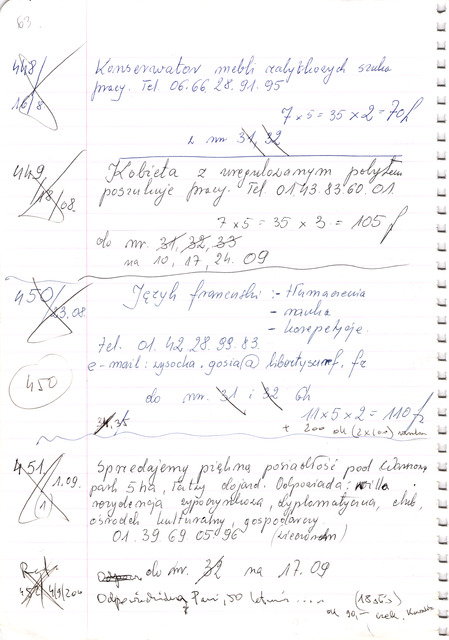 63.
448/
16/8
Konserwator mebli zabytkowych szuka
pracy. Tel. 06.66.28.91.95
7 x 5 = 35 x 2 = 70 f
z nr 31, 32
449
18/08.
Kobieta z uregulowanym pobytem
poszukuje pracy. Tel. 01.43.83.60.01
7 x 5 = 35 x 3 = 105 f
do nr. 31, 32, 33
na 10, 17, 24. 09
450/
23.08
Język francuski :- tłumaczenia
- nauka
- korepetycje.
tel. 01.42.28.99.83.
e-mail: wysocha.gosia@libertysurf.fr
450
do nr. 31 i 32
11 x 5 x 2 = 110 f
+ 200
451
1.09.
Sprzedajemy piękną posiadłość pod
park 5 ha, łatwy dojazd. Odpowiada: willa
rezydencja wypoczynkowa, dyplomatyczna, club,
ośrodek kulturalny, gospodarczy.
01.39.69.05.96
do nr. 32 na 17.09
Pani, 50 letnia ....